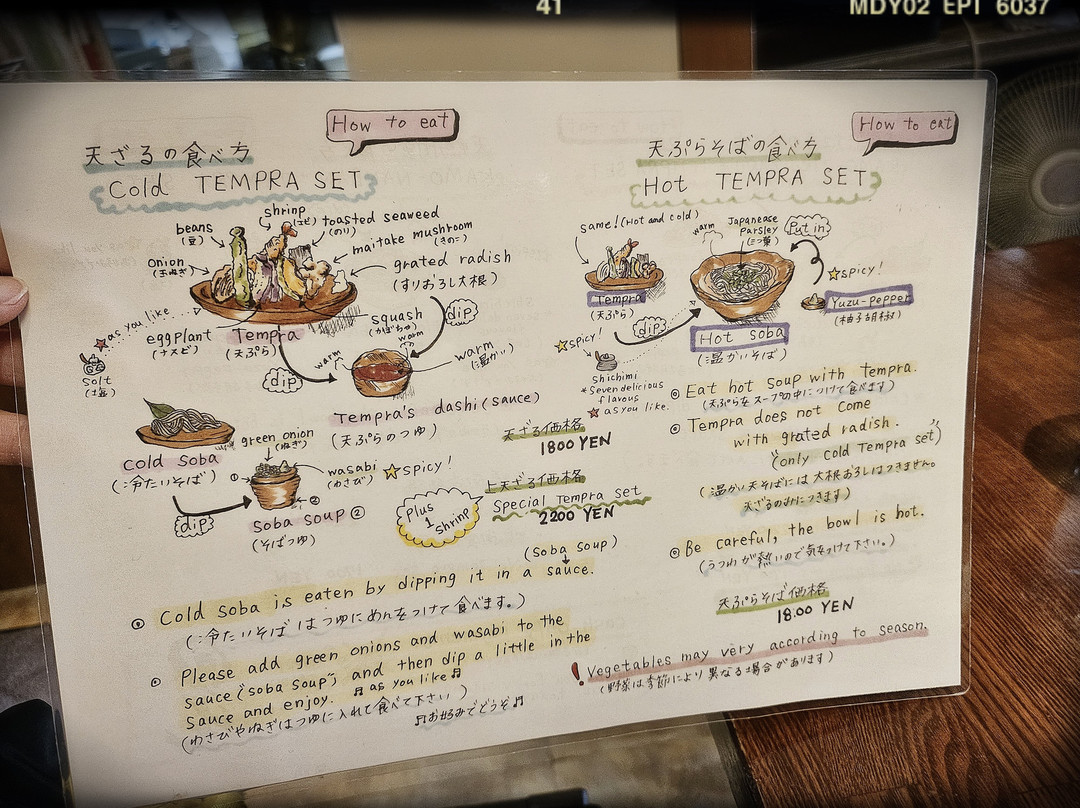 41
MDY02 EPI 6037
How to eat
天ざるの食べ方
Cold TEMPRA SET
shrimp
(エビ)
toasted seaweed
(のり)
beans
(豆)
maitake mushroom
(きのこ)
onion
(玉ねぎ)
grated radish
(すりおろし大根)
as you like...
eggplant
(ナスビ)
Tempra
(天ぷら)
squash
(かぼちゃ)
dip
Solt
(塩)
warm
warm
warm
(温かい)
dip
Tempra's dashi (sauce)
(天ぷらのつゆ)
Cold Soba
(冷たいそば)
green onion
(ねぎ)
①
wasabi
(わさび)
spicy!
②
dip
Soba soup ②
(そばつゆ)
Plus
1
Shrinp
天ざる価格
1800 YEN
上天ざる価格
Special Tempra set
2200 YEN
(Soba soup)
◎ Cold soba is eaten by dipping it in a sauce.
(冷たいそばはつゆにめんをつけて食べます。)
◎ Please add green onions and wasabi to the
sauce ("soba soup") and then dip a little in the
sauce and enjoy. ♫ as you like ♫
(わさびやねぎはつゆに入れて食べて下さい)
♫お好みでどうぞ♫
How to eat
天ぷらそばの食べ方
Hot TEMPRA SET
same! (Hot and cold)
warm
Japanease
Parsley
(三つ葉)
Put in
spicy!
Tempra
(天ぷら)
Yuzu-pepper
(柚子胡椒)
dip
spicy!
Hot soba
(温かいそば)
Shichimi
*Seven delicious
flavous
as you like.
◎ Eat hot soup with tempra.
(天ぷらをスープの中につけて食べます)
◎ Tempra does not come
with grated radish.
("only cold Tempra set")
(温かい天そばには大根おろしはつきません。
天ざるのみにつきます)
◎ Be careful, the bowl is hot.
(うつわが熱いので気をつけて下さい。)
天ぷらそば価格
18.00 YEN
! Vegetables may very according to season.
(野菜は季節により異なる場合があります)